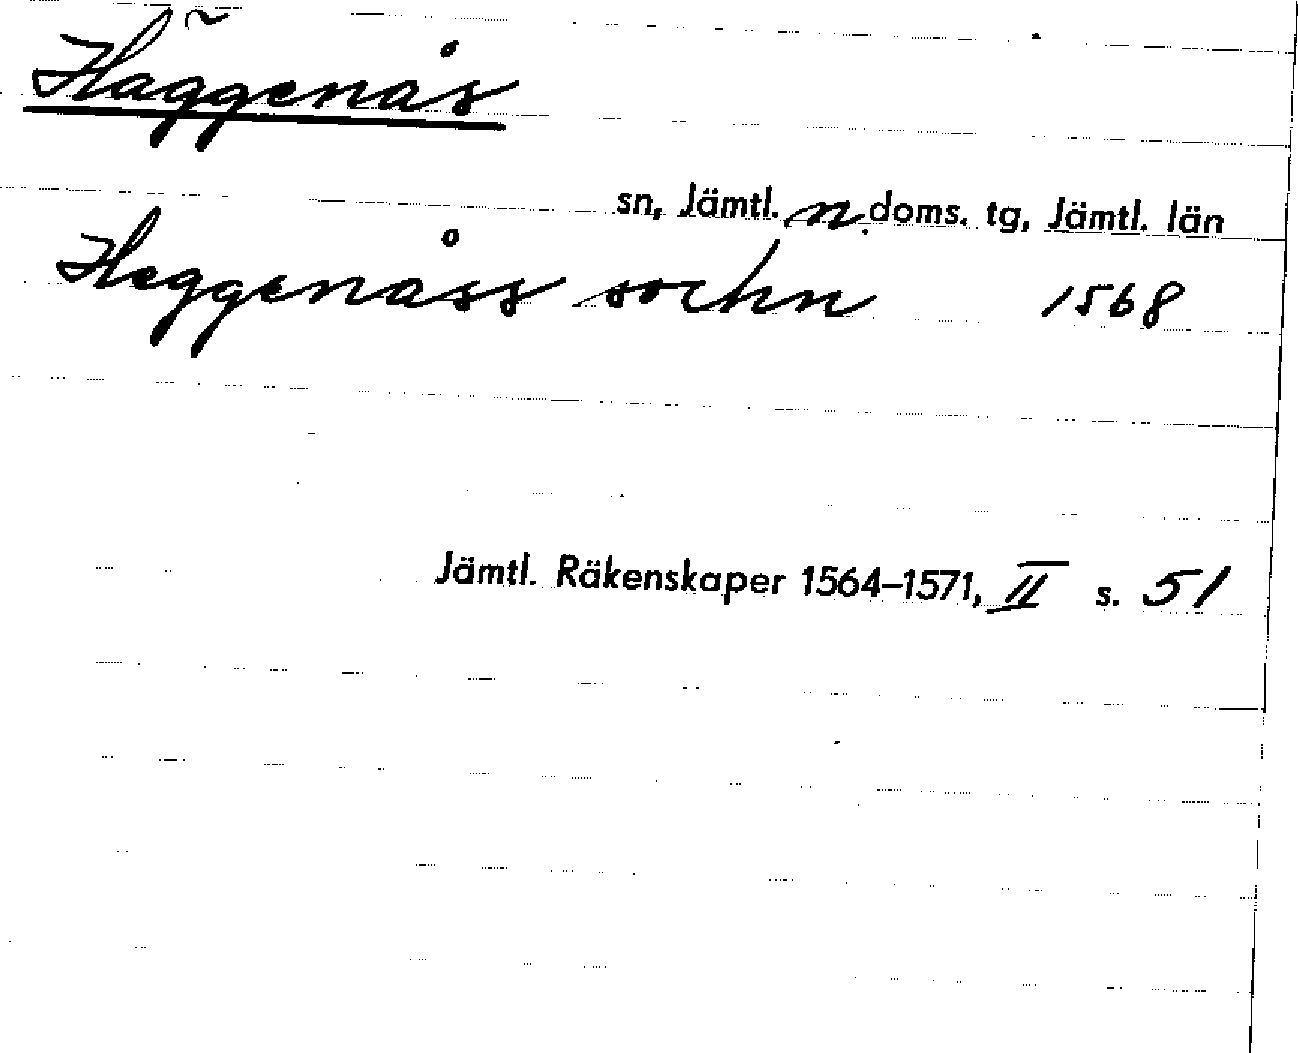 Häggenås
sn, Jämtl. n. doms. tg, Jämtl. län
Heggenåss sochn 1568
Jämtl. Räkenskaper 1564–1571, II s. 51